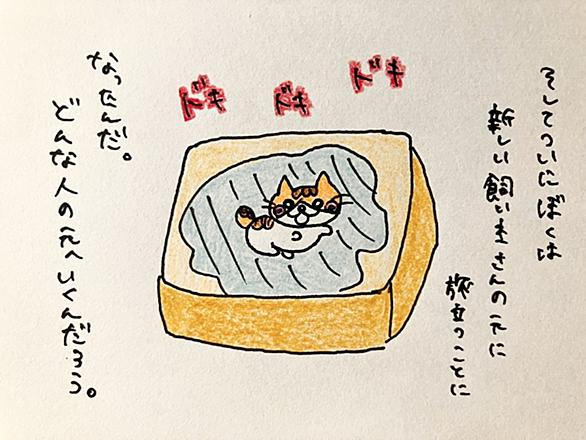 そしてついにぼくは
新しい飼い主さんの元に
旅立つことに
ドキ
ドキ
ドキ
なったんだ。
どんな人の元へいくんだろう。